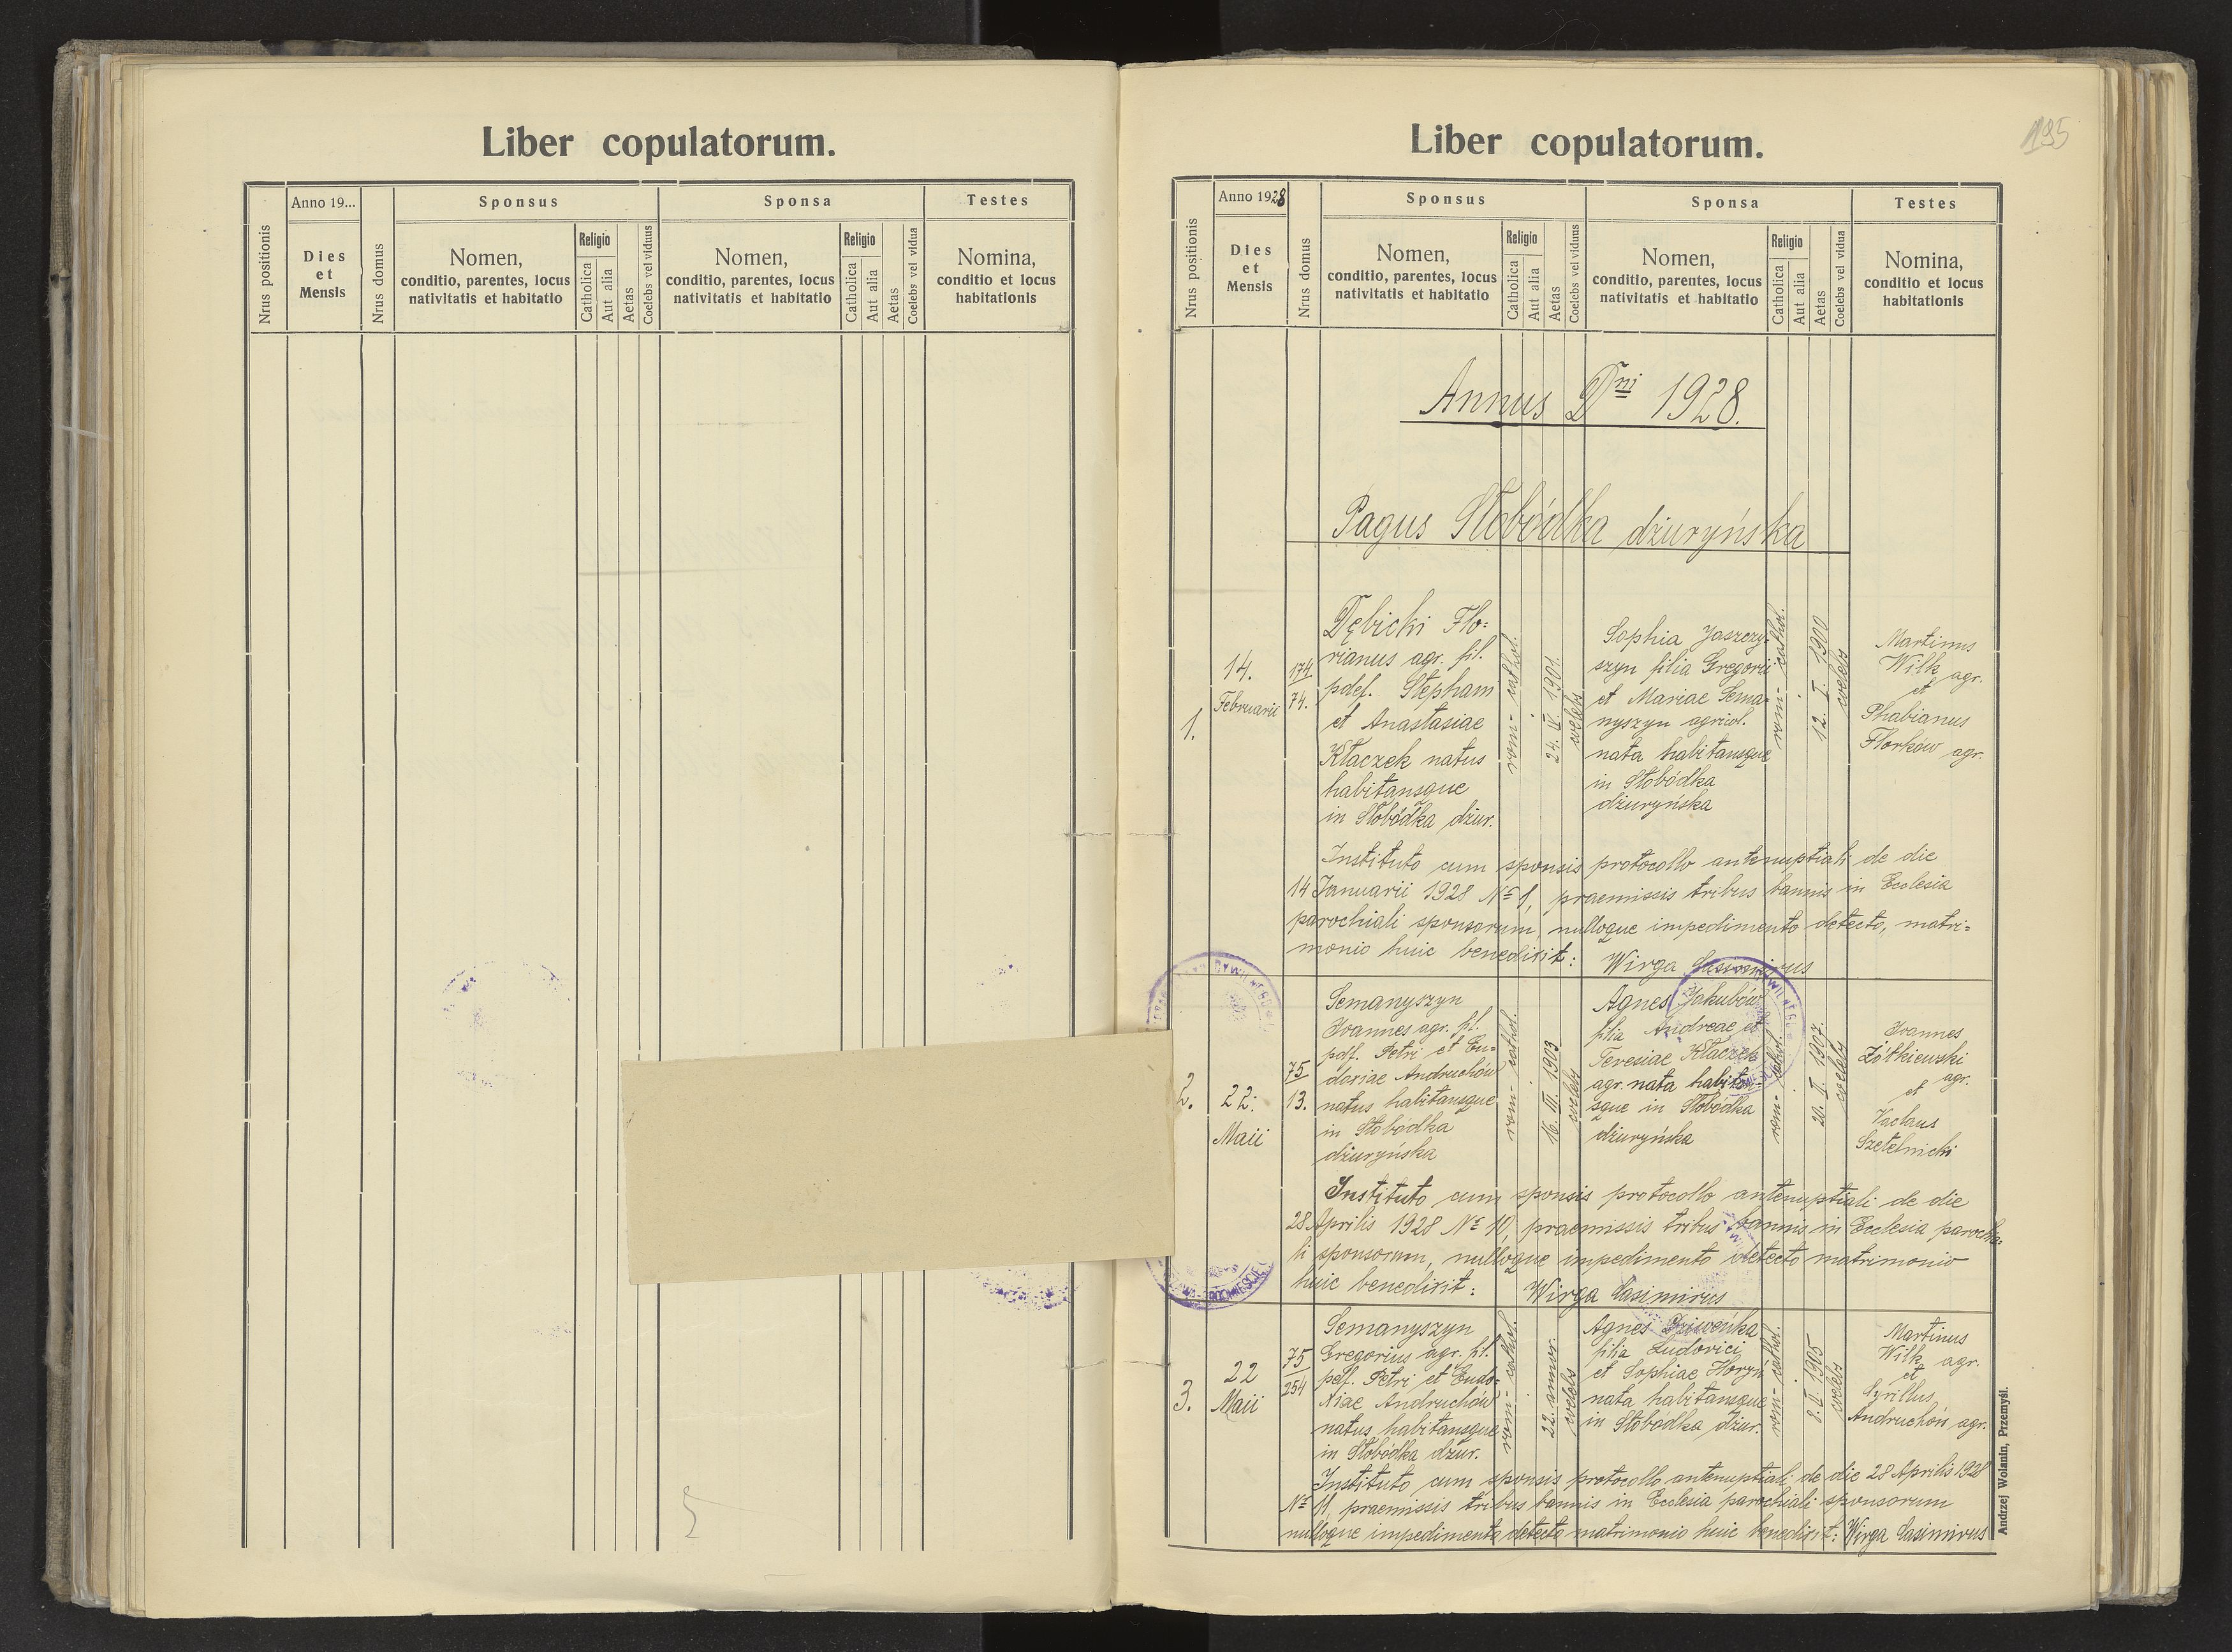 Liber copulatorum.
Nrus positionis
Anno 19...
Dies
et
Mensis
Nrus domus
Sponsus
Nomen,
conditio, parentes, locus
nativitatis et habitatio
Religio
Catholica
Aut alia
Aetas
Coelebs vel viduus
Sponsa
Nomen,
conditio, parentes, locus
nativitatis et habitatio
Religio
Catholica
Aut alia
Aetas
Coelebs vel vidua
Testes
Nomina,
conditio et locus
habitationis
195
Liber copulatorum.
Nrus positionis
Anno 1928
Dies
et
Mensis
Nrus domus
Sponsus
Nomen,
conditio, parentes, locus
nativitatis et habitatio
Religio
Catholica
Aut alia
Aetas
Coelebs vel viduus
Sponsa
Nomen,
conditio, parentes, locus
nativitatis et habitatio
Religio
Catholica
Aut alia
Aetas
Coelebs vel vidua
Testes
Nomina,
conditio et locus
habitationis
Annus Dni 1928.
Pagus Słobódka dżuryńska
1.
14.
Februarii
174
74.
Dębicki Flo=
rianus agr. fil.
pdef. Stephani
et Anastasiae
Kłaczek natus
habitansque
in Słobódka dżur.
rom- cathol.
24. II. 1901.
coelebs
Sophia Jaszczy-
szyn filia Gregorii
et Mariae Sema-
nyszyn agricol.
nata habitansque
in Słobódka
dżuryńska
rom- cathol.
12. I. 1900
coelebs
Martinus
Wilk agr.
et
Phabianus
Florków agr.
Instituto cum sponsis protocollo antenuptiali de die
14 Januarii 1928 No 1, praemissis tribus bannis in Ecclesia
parochiali sponsorum nulloque impedimento detecto, matri=
monio huic benedixit: Wirga Casimirus
2.
22.
Maii
75
13.
Semanyszyn
Joannes agr. fil.
pdf. Petri et Eu=
doxiae Andruchów
natus habitansque
in Słobódka
dżuryńska
rom- cathol.
16. III. 1903
coelebs
Agnes Jakubów
filia Andreae et
Teresiae Kłaczek
agr. nata habitan-
sque in Słobódka
dżuryńska
rom- cathol.
20. I. 1907.
coelebs
Joannes
Żółkiewski
agr.
et
Vaclaus
Szetelnicki
Instituto cum sponsis protocollo antenuptiali de die
28 Aprilis 1928 No 10, praemissis tribus bannis in Ecclesia parochia=
li sponsorum, nulloque impedimento detecto matrimonio
huic benedixit: Wirga Casimirus
3.
22
Maii
75
254
Semanyszyn
Gregorius agr. fil.
pdf. Petri et Eudo=
xiae Andruchów
natus habitansque
in Słobódka dżur.
rom- cathol.
22. annor.
coelebs
Agnes Dziweńka
filia Ludovici
et Sophiae Horyń
nata habitansque
in Słobódka dżur.
rom- cathol.
8. II. 1905
coelebs
Martinus
Wilk agr.
et
Cyrillus
Andruchów agr.
Instituto cum sponsis protocollo antenuptiali de die 28 Aprilis 1928
No 11, praemissis tribus bannis in Ecclesia parochiali sponsorum
nulloque impedimento detecto matrimonio huic benedixit: Wirga Casimirus
Andrzej Wolanin, Przemyśl.